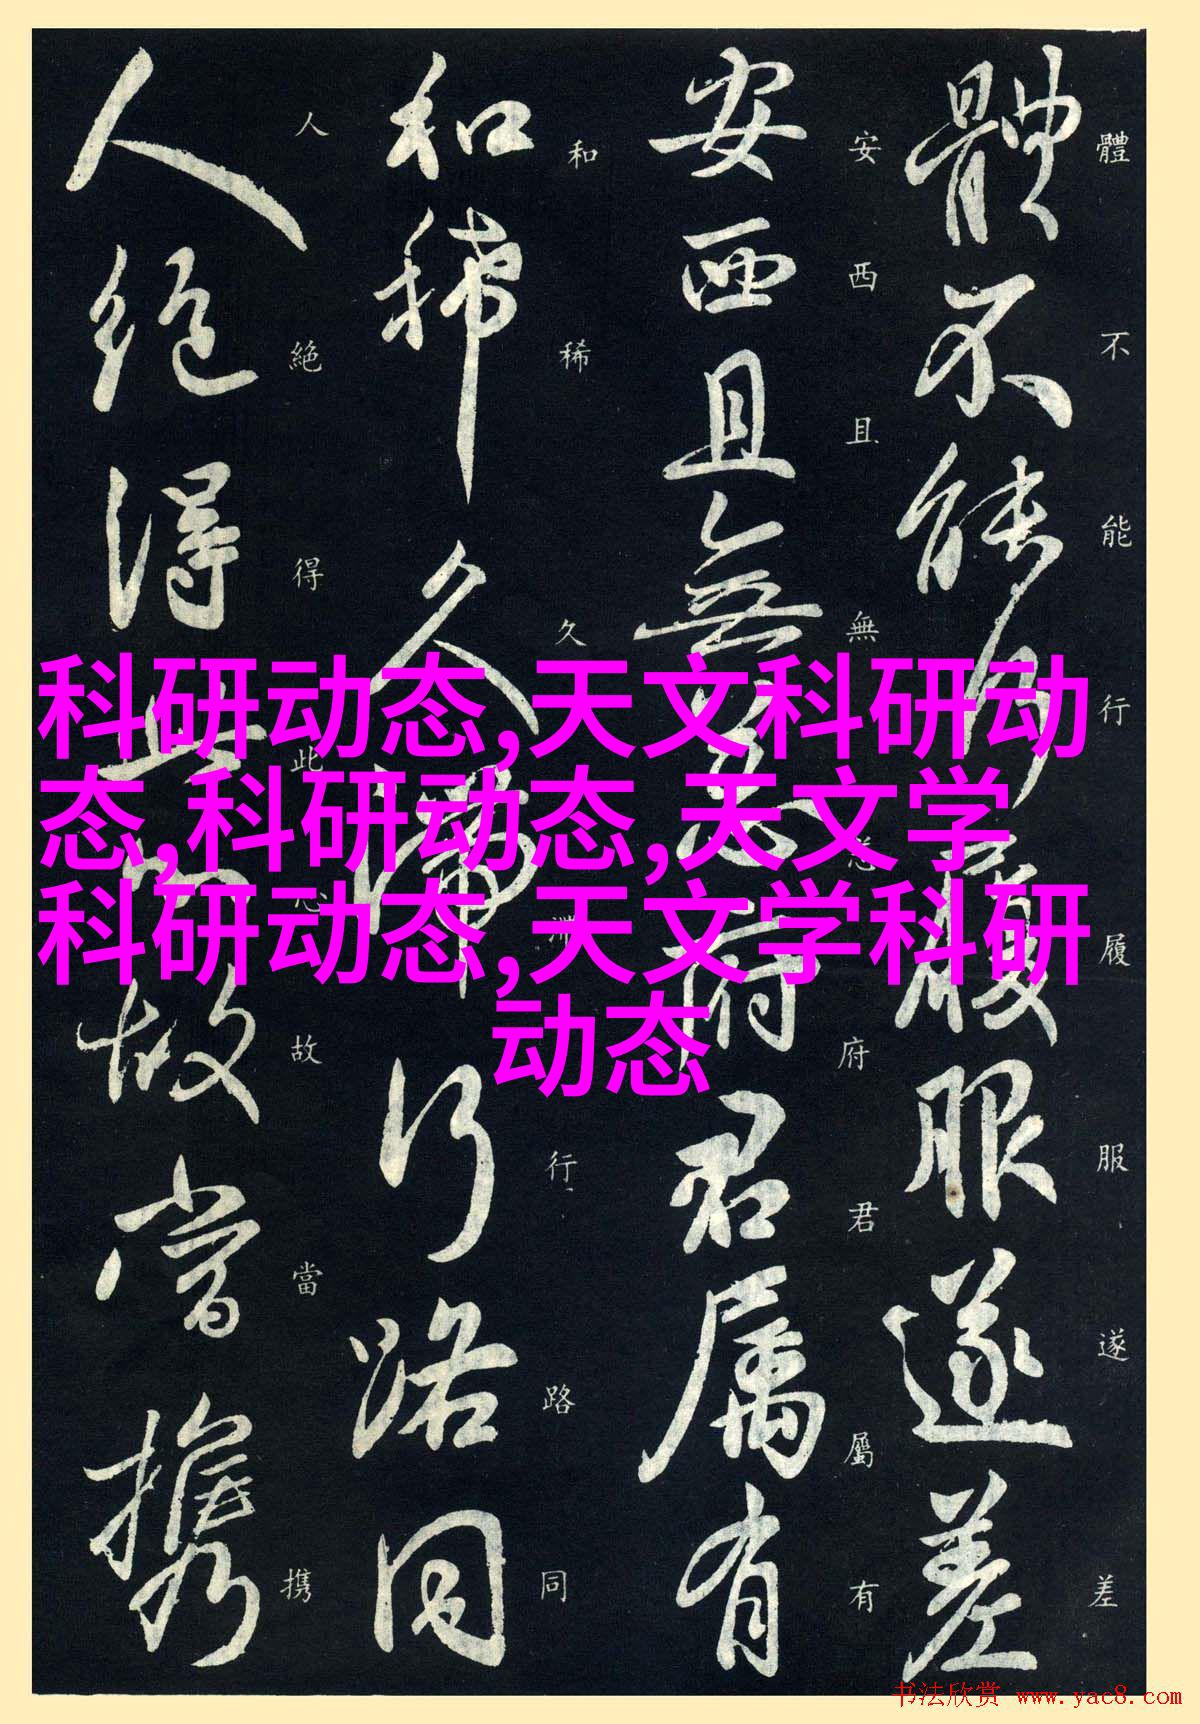 體不能行履服遂差
體不能行履服遂差
安西且無恙府君屬有
安西且無恙府君屬有
和稀久滯行路同
和稀久行路同
人絕得此故當攜
人絕得此故當携
科研动态,天文科研动
态,科研动态,天文学
科研动态,天文学科研
动态
书法欣赏 www.yac8.com